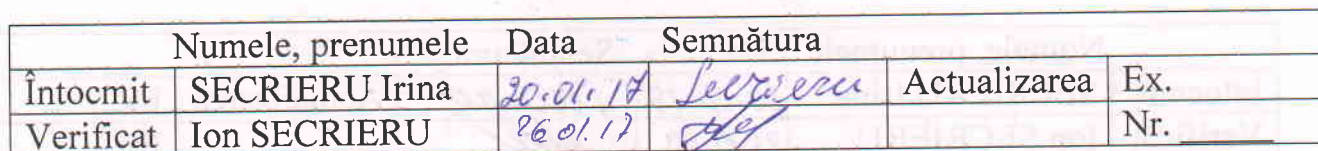 Numele, prenumele Data Semnătura
Întocmit SECRIERU Irina 20.01.17 Secrieru Actualizarea Ex.
Verificat Ion SECRIERU 26 01.17 Nr. ______